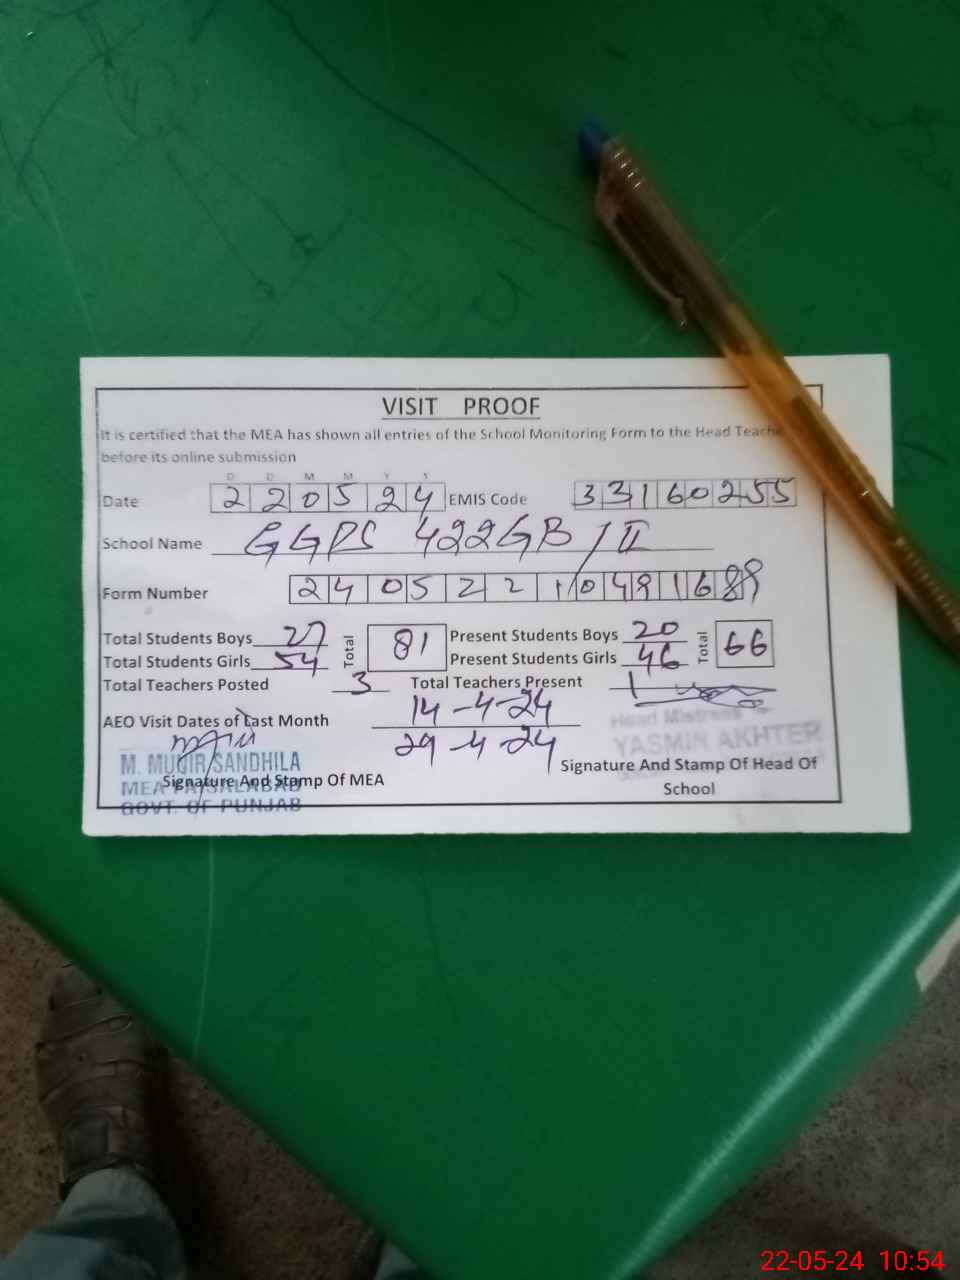 VISIT PROOF
It is certified that the MEA has shown all entries of the School Monitoring Form to the Head Teache
before its online submission
D D M M Y Y
Date 220524 EMIS Code 33160255
School Name GGPS 422GB/II
Form Number 24052210491689
Total Students Boys 27 Total 81 Present Students Boys 20 Total 66
Total Students Girls 54 Present Students Girls 46
Total Teachers Posted 3 Total Teachers Present 1
AEO Visit Dates of Last Month 14-4-24
29-4-24
Head Mistress
YASMIN AKHTER
M. MUNIR SANDHILA
MEA FAISALABAD
GOVT. OF PUNJAB
Signature And Stamp Of MEA
Signature And Stamp Of Head Of
School
22-05-24 10:54